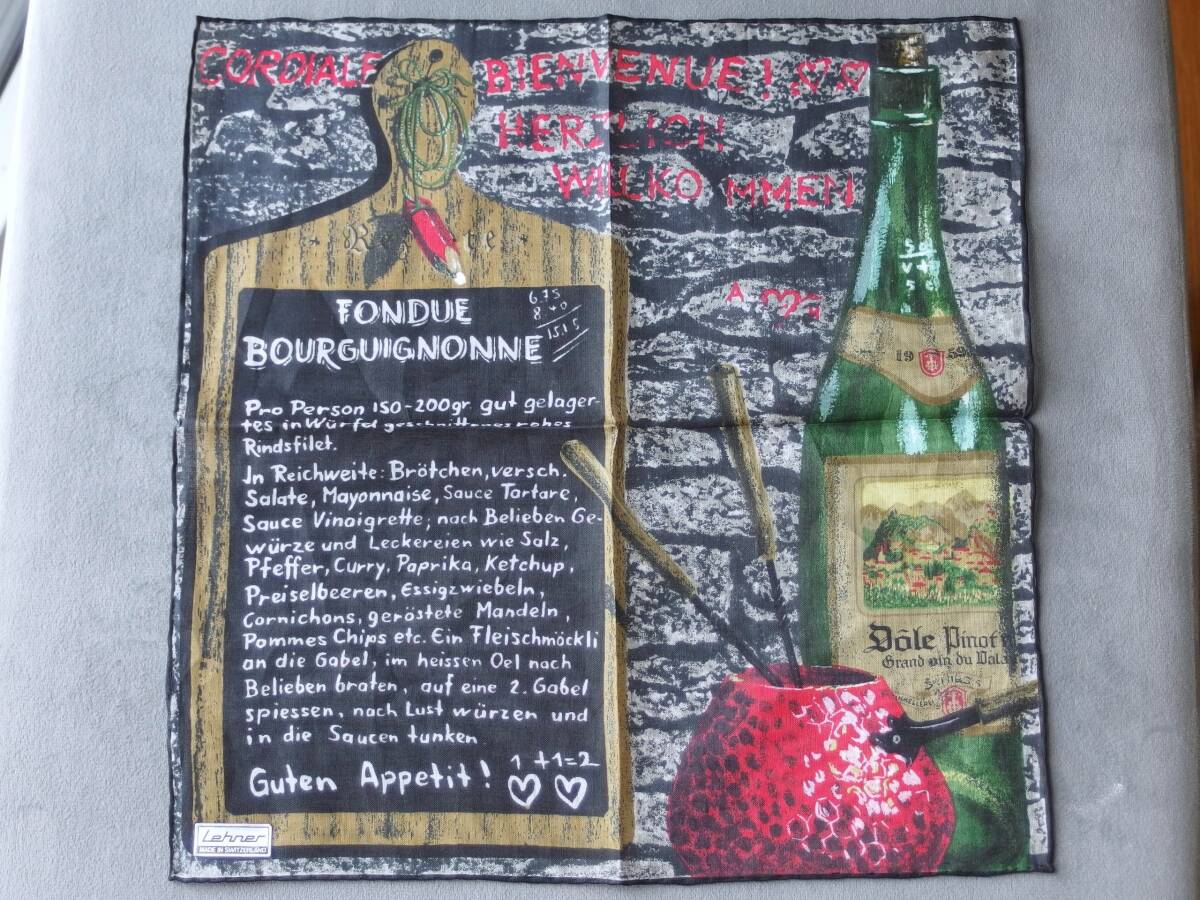 CORDIALE BIENVENUE!
HERZLICH
WILLKOMMEN
A
Rezepte
FONDUE
BOURGUIGNONNE
6.75
8.40
15.15
Pro Person 150-200gr gut gelager-
tes in Würfel geschnittenes rohes
Rindsfilet.
Jn Reichweite: Brötchen, versch.
Salate, Mayonnaise, Sauce Tartare,
Sauce Vinaigrette, nach Belieben Ge-
würze und Leckereien wie Salz,
Pfeffer, Curry, Paprika, Ketchup,
Preiselbeeren, Essigzwiebeln,
Cornichons, geröstete Mandeln,
Pommes Chips etc. Ein Fleischmöckli
an die Gabel, im heissen Oel nach
Belieben braten, auf eine 2. Gabel
spiessen, nach Lust würzen und
in die Saucen tunken
Guten Appetit!
1+1=2
1959
Dôle Pinot
Grand vin du Vala
Lehner
MADE IN SWITZERLAND